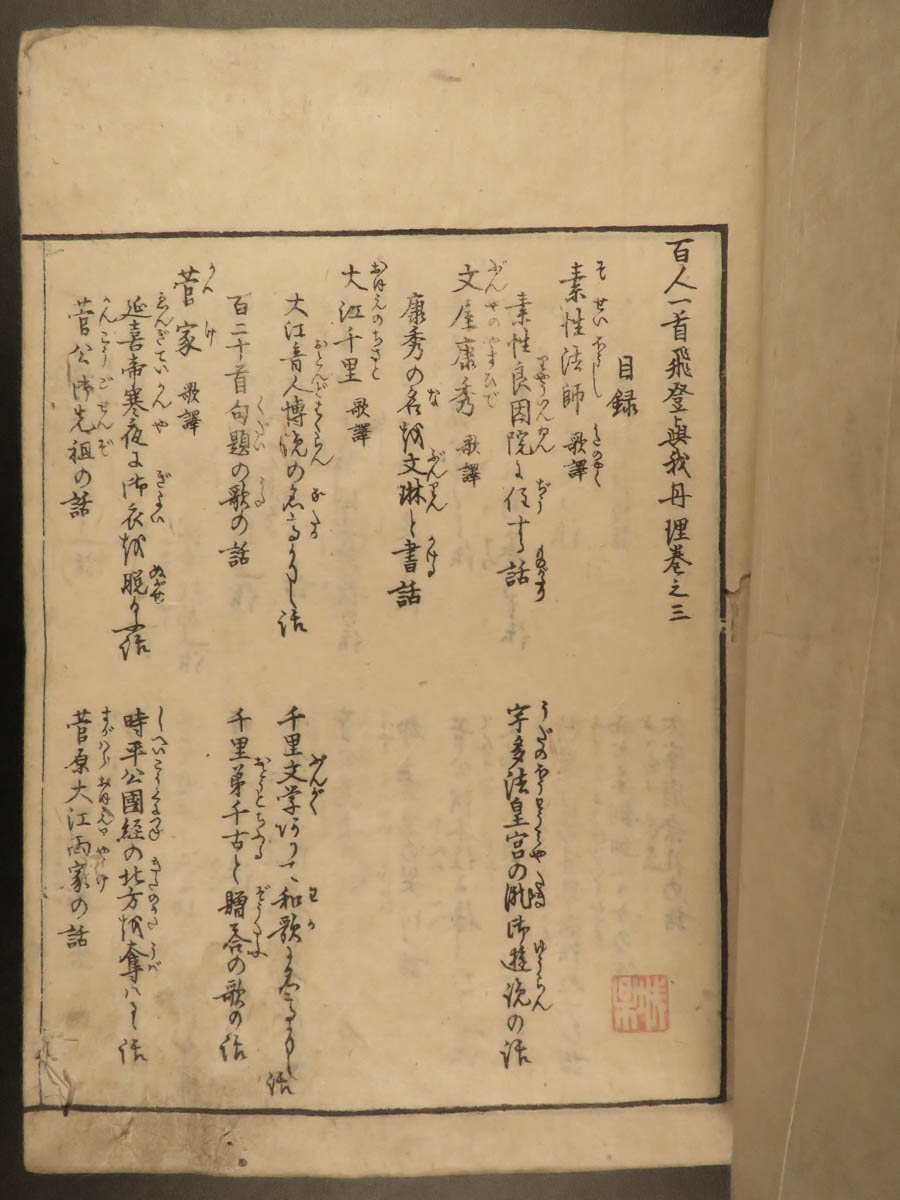 百人一首飛登與我丹理巻之三
目録
素性法師 歌譯
素性良因院に住する話
宇多法皇宮の瀧御遊覧の話
文屋康秀 歌譯
康秀の名越文琳と書話
大江千里 歌譯
大江音人博覧の名高かりし話
千里文学ありて和歌に名高かりし話
百二十首句題の歌の話
千里弟千古と贈答の歌の話
菅家 歌譯
延喜帝寒夜に御衣越脱給ふ話
時平公國経の北方越奪はれし話
菅公御先祖の話
菅原大江両家の話